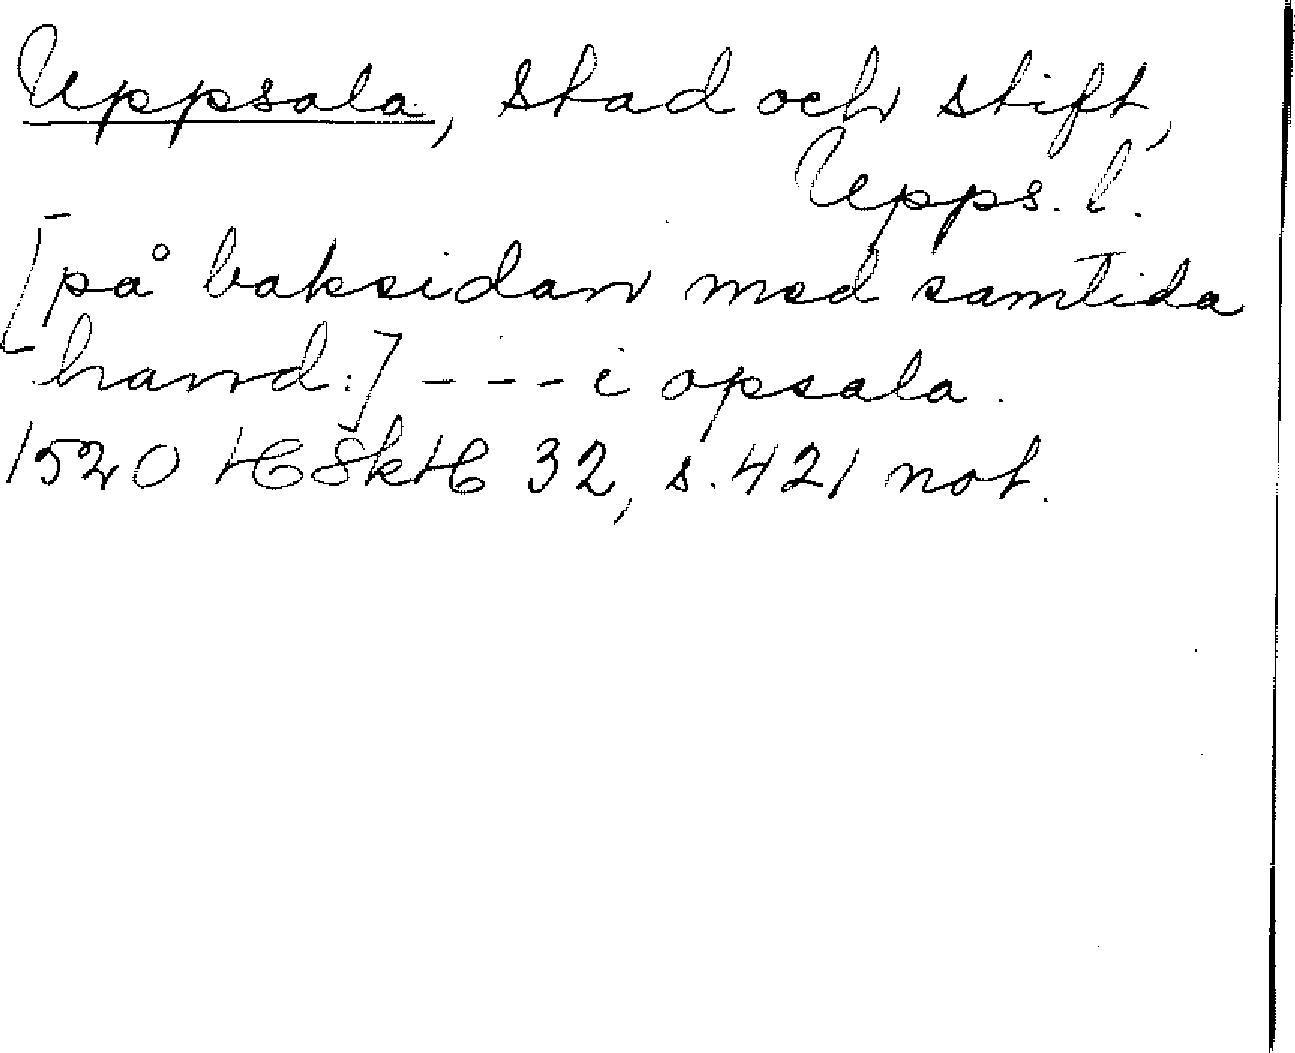 Uppsala, stad och stift,
Upps. l.
[på baksidan med samtida
hand:] - - - i opsala.
1520 HSkH 32, s. 421 not.